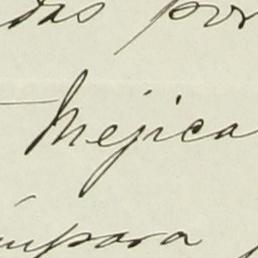 das por
Mejica
ampara